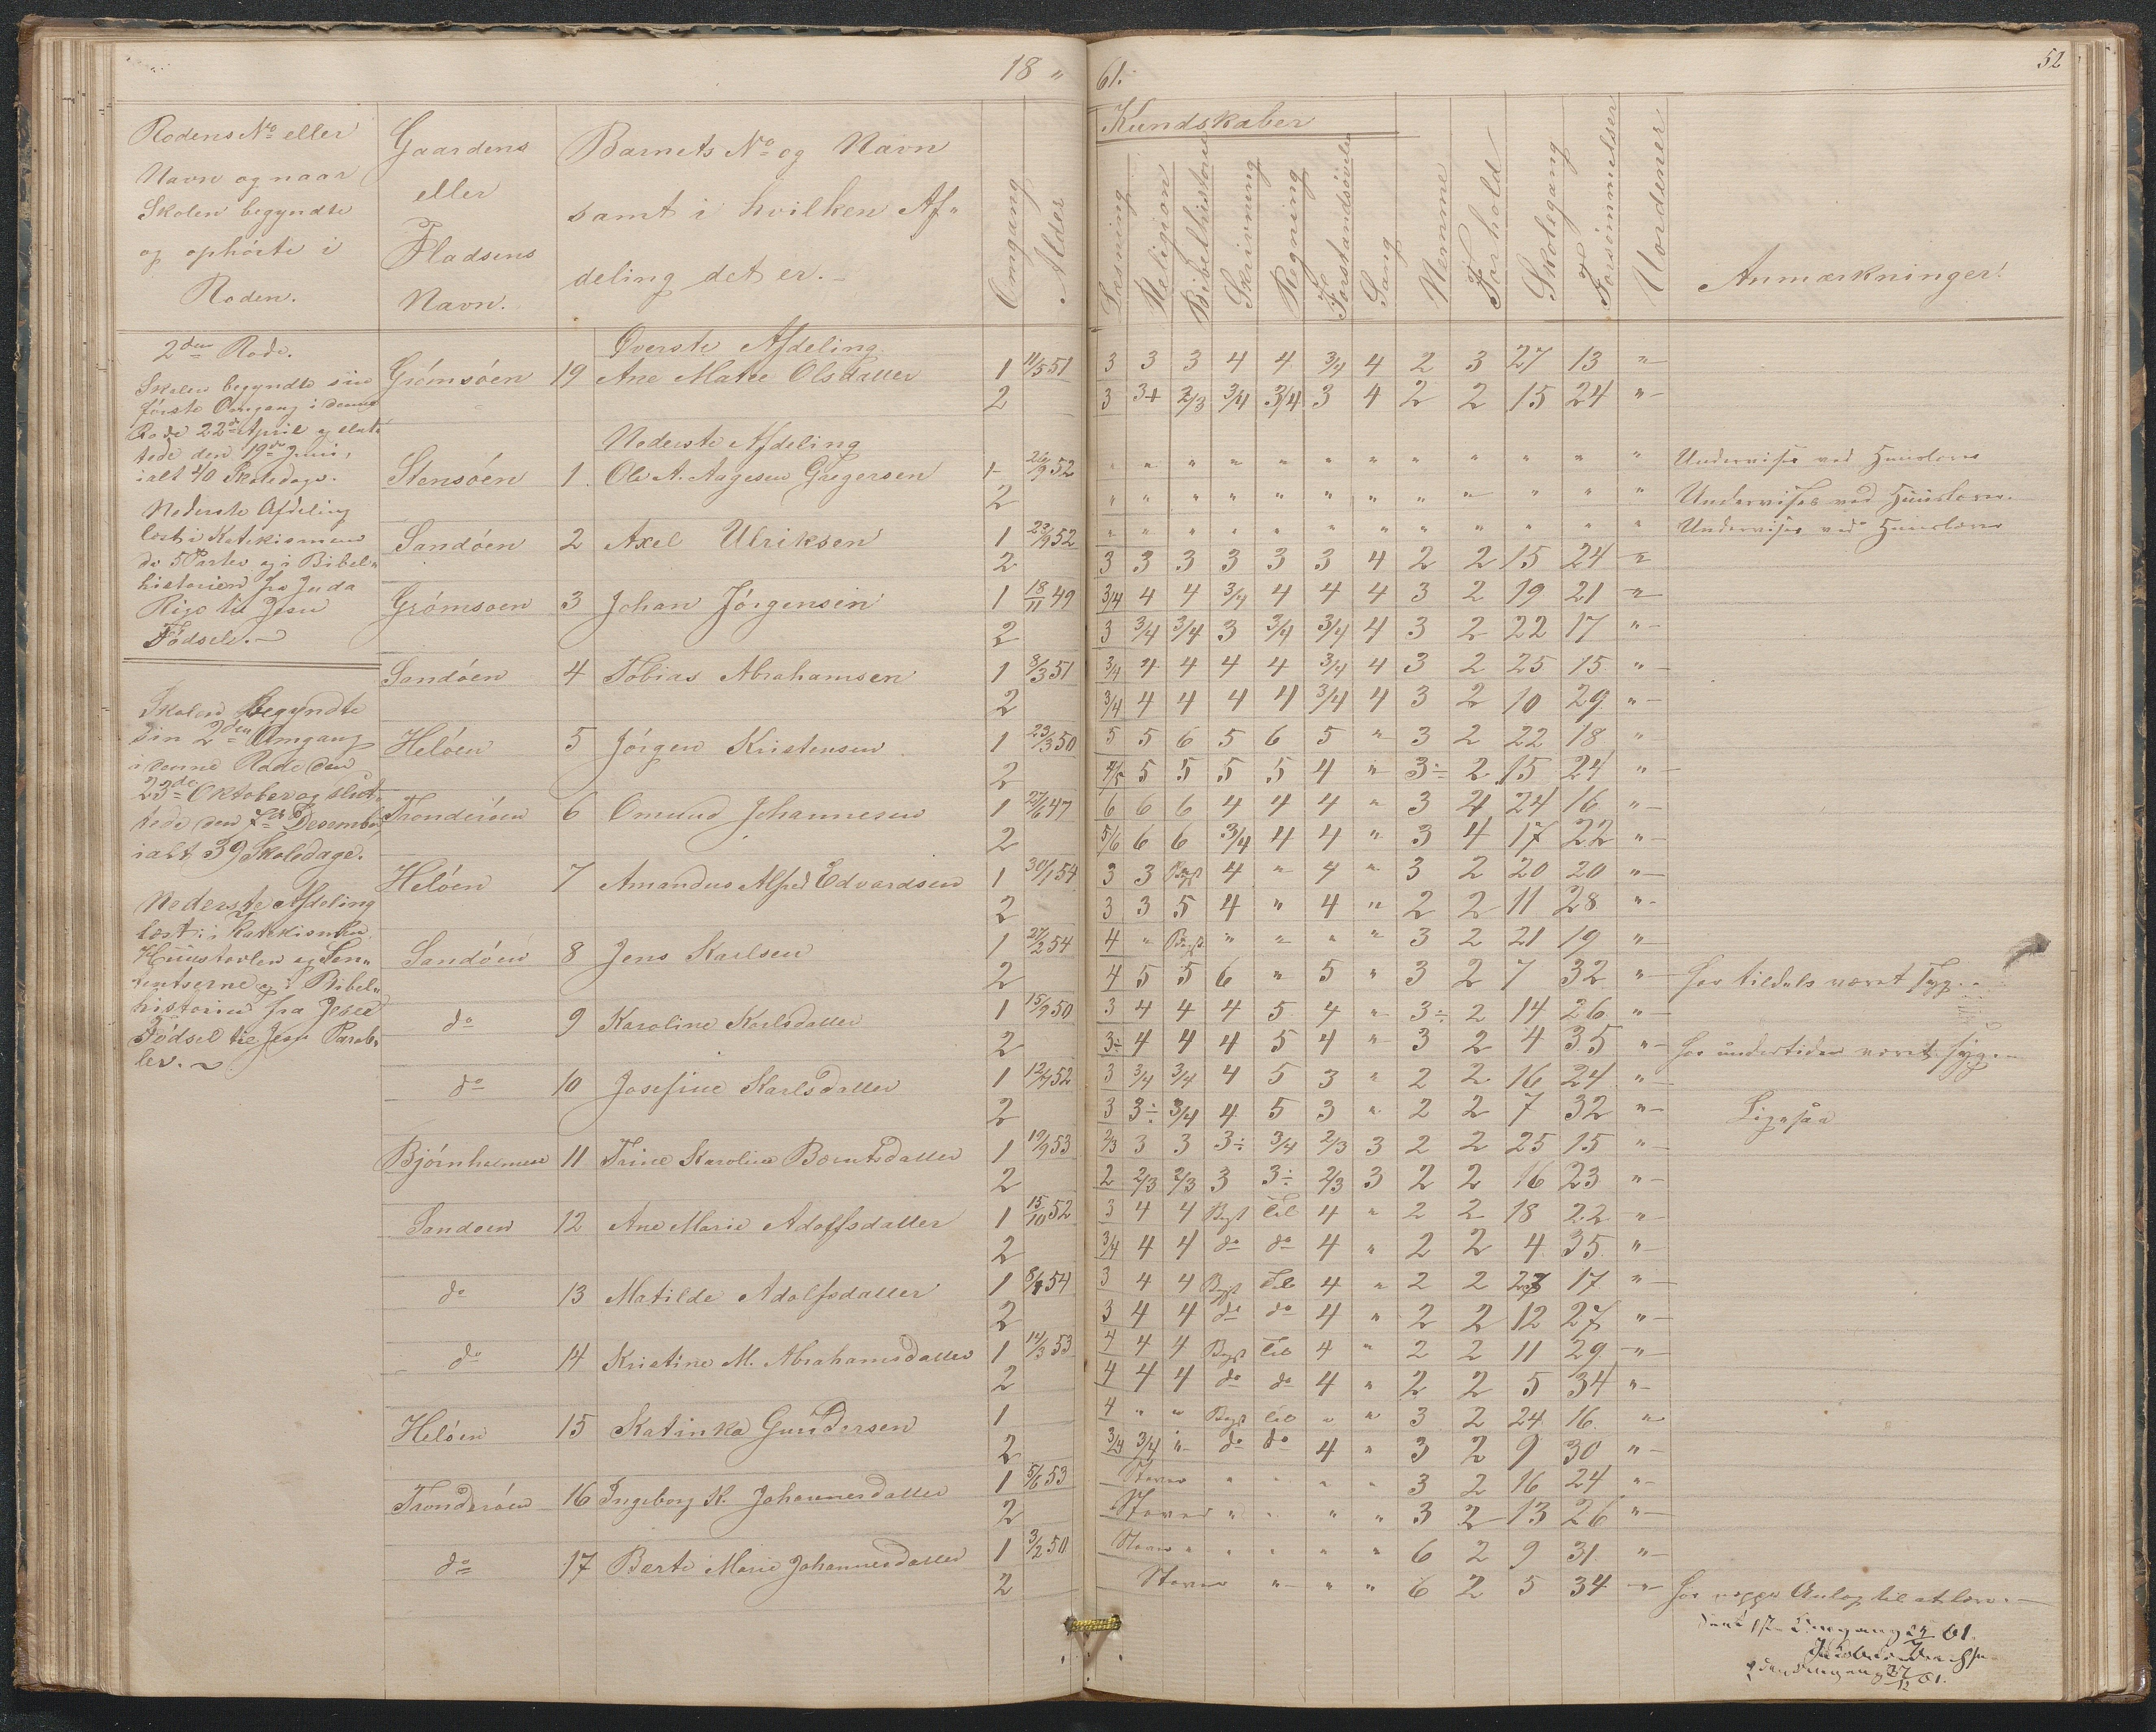 18 "
61.
52
Rodens No eller
Navn og naar
Skolen begyndte
og ophörte i
Roden.
Gaardens
eller
Pladsens
Navn.
Barnets No og Navn
samt i hvilken Af-
deling det er.
Omgang
Alder
Kundskaber
Læsning
Religion
Bibelhistorie
Skrivning
Regning
Forstandsövelse
Sang
Nemme
Forhold
Skolegang
Forsömmelser
Vordener
Anmærkninger.
2den Rode.
Skolen begyndte sin
förste Omgang i denne
Rode 22de April og slut-
tede den 19de Juni,
ialt 40 Skoledage.
Nederste Afdeling
læst i Katekismens
de 5 Parter og i Bibel-
historien fra Juda
Rige til Jesu
Födsel.
Skolen begyndte
sin 2den Omgang
i denne Rode den
23de Oktober og slut-
tede den 7de Desember
ialt 39 Skoledage.
Nederste Afdeling
læst i Katekismen
Huustavlen og Sen-
tentserne og i Bibel-
historien fra Jesu
Födsel til Jesu Parab-
ler.
Överste Afdeling
Grömsöen 19 Ane Marie Olsdatter 1 11/5 51 3 3 3 4 4 3/4 4 2 3 27 13 "
2 3 3+ 2/3 3/4 3/4 3 4 2 2 15 24 "
Nederste Afdeling
Stensöen 1 Ole A. Aagesen Gregersen 1 26/9 52 " " " " " " " " " " " " Undervises ved Huuslærer
2 " " " " " " " " " " " " Undervises ved Huuslærer.
Sandöen 2 Axel Ulriksen 1 23/9 52 " " " " " " " " " " " " Undervises ved Huuslærer
2 3 3 3 3 3 3 4 2 2 15 24 "
Grömsoen 3 Johan Jörgensen 1 18/11 49 3/4 4 4 3/4 4 4 4 3 2 19 21 "
2 3 3/4 3/4 3 3/4 3/4 4 3 2 22 17 "
Sandöen 4 Tobias Abrahamsen 1 8/3 51 3/4 4 4 4 4 3/4 4 3 2 25 15 "
2 3/4 4 4 4 4 3/4 4 3 2 10 29 "
Helöen 5 Jörgen Kristensen 1 23/3 50 5 5 6 5 6 5 " 3 2 22 18 "
2 4/5 5 5 5 5 4 " 3÷ 2 15 24 "
Tronderöen 6 Omund Johannesen 1 27/6 47 6 6 6 4 4 4 " 3 4 24 16 "
2 5/6 6 6 3/4 4 4 " 3 4 17 22 "
Helöen 7 Amandus Alfred Edvardsen 1 30/1 54 3 3 Begt 4 " 4 " 3 2 20 20 "
2 3 3 5 4 " 4 " 2 2 11 28 "
Sandöen 8 Jens Karlsen 1 27/2 54 4 " Begt " " " " 3 2 21 19 "
2 4 5 5 6 " 5 " 3 2 7 32 " har tildels været syg.
do 9 Karoline Karlsdatter 1 15/9 50 3 4 4 4 5 4 " 3÷ 2 14 26 "
2 3÷ 4 4 4 5 4 " 3 2 4 35 " har undertiden været syg.
do 10 Josefine Karlsdatter 1 12/7 52 3 3/4 3/4 4 5 3 " 2 2 16 24 "
2 3 3÷ 3/4 4 5 3 " 2 2 7 32 " Ligesaa
Björnholmen 11 Trine Karoline Berntsdatter 1 19/9 53 2/3 3 3 3÷ 3/4 2/3 3 2 2 25 15 "
2 2 2/3 2/3 3 3÷ 2/3 3 2 2 16 23 "
Sandoen 12 Ane Marie Adolfsdatter 1 15/10 52 3 4 4 Begt Til 4 " 2 2 18 22 "
2 3/4 4 4 do do 4 " 2 2 4 35 "
do 13 Matilde Adolfsdatter 1 8/1 54 3 4 4 Begt Til 4 " 2 2 23 17 "
2 3 4 4 do do 4 " 2 2 12 27 "
do 14 Kristine M. Abrahamsdatter 1 14/3 53 4 4 4 Begt Til 4 " 2 2 11 29 "
2 4 4 4 do do 4 " 2 2 5 34 "
Helöen 15 Katinka Gundersen 1 4 " " Begt til " " 3 2 24 16 "
2 3/4 3/4 " do do 4 " 3 2 9 30 "
Tronderöen 16 Ingeborg K. Johannesdatter 1 5/6 53 Staver " " " " 3 2 16 24 "
2 Staver " " " " 3 2 13 26 "
do 17 Berte Marie Johannesdatter 1 3/2 50 Staver " " " " " 6 2 9 31 "
2 Staver " " " 6 2 5 34 " har neppe Anlæg til at lære.
61.
61.